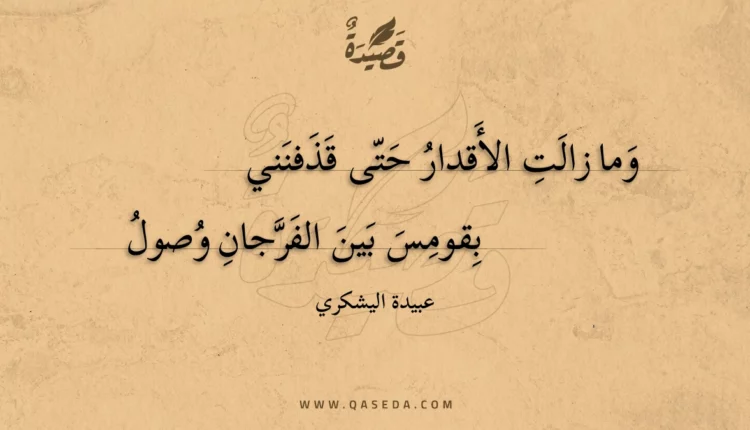 قَصِيْدَةٌ
وَما زالَتِ الأَقدارُ حَتّى قَذَفنَني
بِقومِسَ بَينَ الفَرَّجانِ وُصولُ
عبيدة اليشكري
WWW.QASEDA.COM